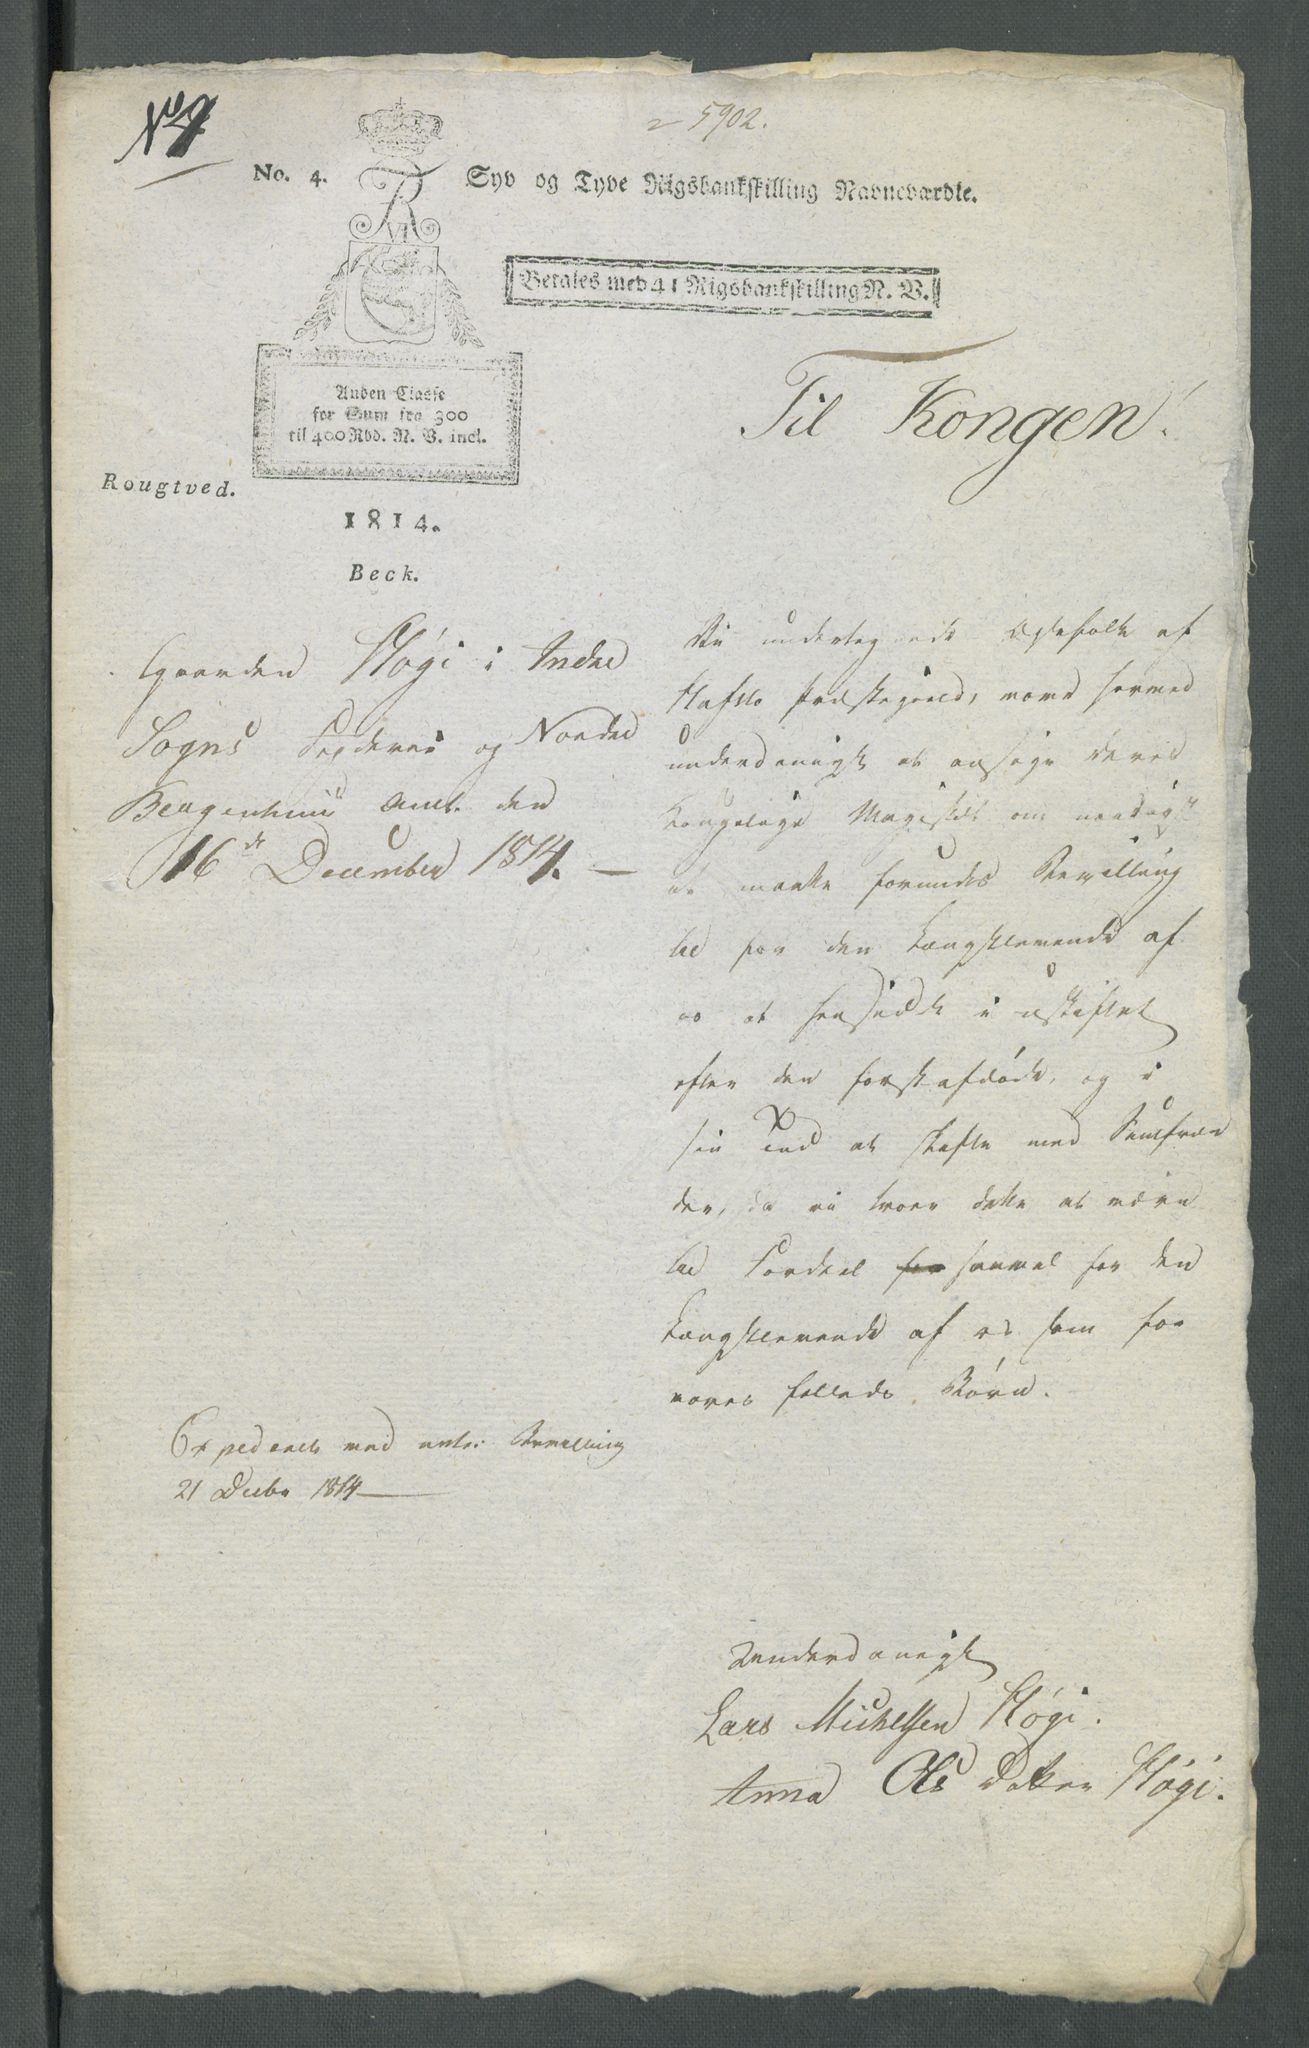 No 7
5902.
No. 4.
Syv og Tyve Rigsbankskilling Navneværdie.
FR
VI
Betales med 41 Rigsbankskilling N. V.
Anden Classe
for Sum fra 300
til 400 Rbd. N. V. incl.
Rougtved.
1814.
Beck.
Til Kongen!
Gaarden Høgi i Indre
Sogns Fogderie og Nordre
Bergenhuus Amt den
16de December 1814.
Vi undertegnede Ægtefolk af
Hafslo Præstegield, vove hermed
underdanigst at ansøge Deres
Kongelige Majestæt om naadigst
at maatte forundes Bevilling
til for den Længstlevende af
os at hensidde i uskiftet
efter den førstafdøde, og i
sin Tid at skifte med Samfræn
der, da vi troer dette at være
til Fordeel for saavel for den
Længstlevende af os som for
vores fælleds Børn.
Expederet med Bevilling
21 Decbr 1814
Underdanigst
Lars Michelsen Høgi.
Anna Ols Datter Høgi.